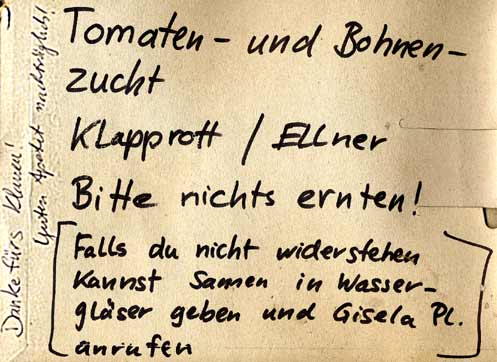 Tomaten- und Bohnen-
zucht
Klapprott / Ellner
Bitte nichts ernten!
[Falls du nicht widerstehen
kannst Samen in Wasser-
gläser geben und Gisela Pl.
anrufen]
Danke fürs Klauen!
Guten Apetit nachträglich!